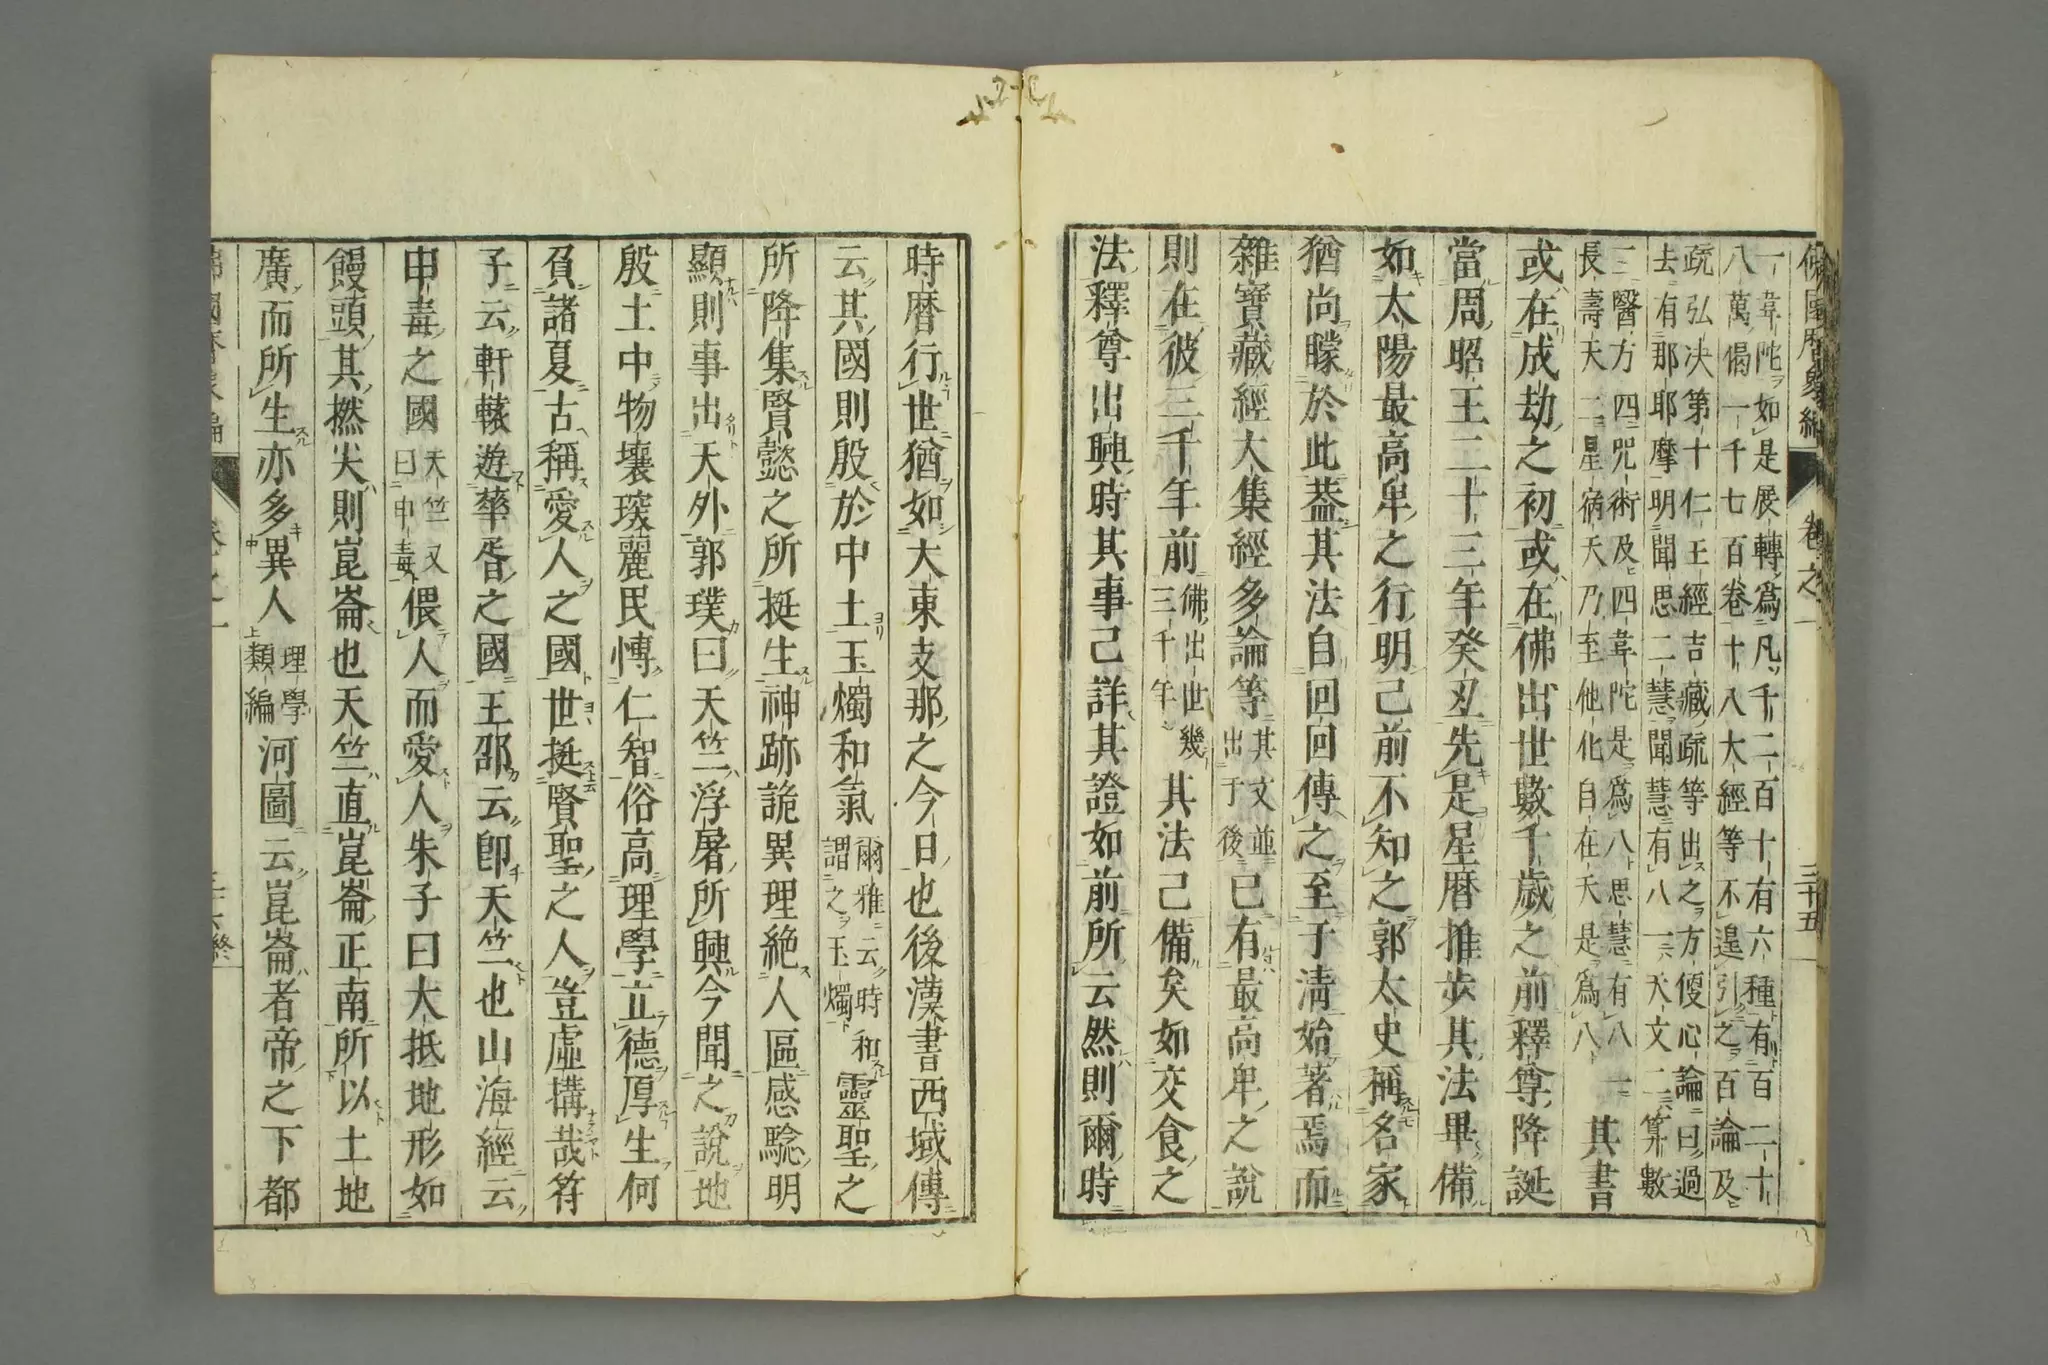 佛國曆象編 卷之一 三十五
一韋陀如是展轉爲凡千二百十有六種有百二十
八萬偈一千七百卷十八大經等不遑引之百論及
疏弘决第十仁王經吉藏疏等出之方便心論曰過
去有那耶摩明聞思二慧聞慧有八一天文二算數
三醫方四咒術及四韋陀是爲八思慧有八一
長壽天二星宿天乃至他化自在天是爲八其書
或在成劫之初或在佛出世數千歲之前釋尊降誕
當周昭王二十三年癸丑先是星曆推步其法畢備
如太陽最高卑之行明已前不知之郭太史稱名家
猶尚矇於此葢其法自回回傳之至于清始著焉而
雜寶藏經大集經多論等其文並出于後已有最高卑之說
則在彼三千年前佛出世幾三千年其法已備矣如交食之
法釋尊出興時其事已詳其證如前所云然則爾時
時曆行世猶如大東支那之今日也後漢書西域傳
云其國則殷於中土玉燭和氣爾雅云時和謂之玉燭靈聖之
所降集賢懿之所挺生神跡詭異理絕人區感騐明
顯則事出天外郭璞曰天竺浮屠所興今聞之說地
殷土中物壤琛麗民慱仁智俗高理學立德厚生何
負諸夏古稱愛人之國世挺賢聖之人豈虛搆哉符
子云軒轅遊華胥之國王邵云卽天竺也山海經云
申毒之國天竺又曰申毒偎人而愛人朱子曰大抵地形如
饅頭其撚尖則崑崙也天竺直崑崙正南所以土地
廣而所生亦多異人理學類編河圖云崑崙者帝之下都